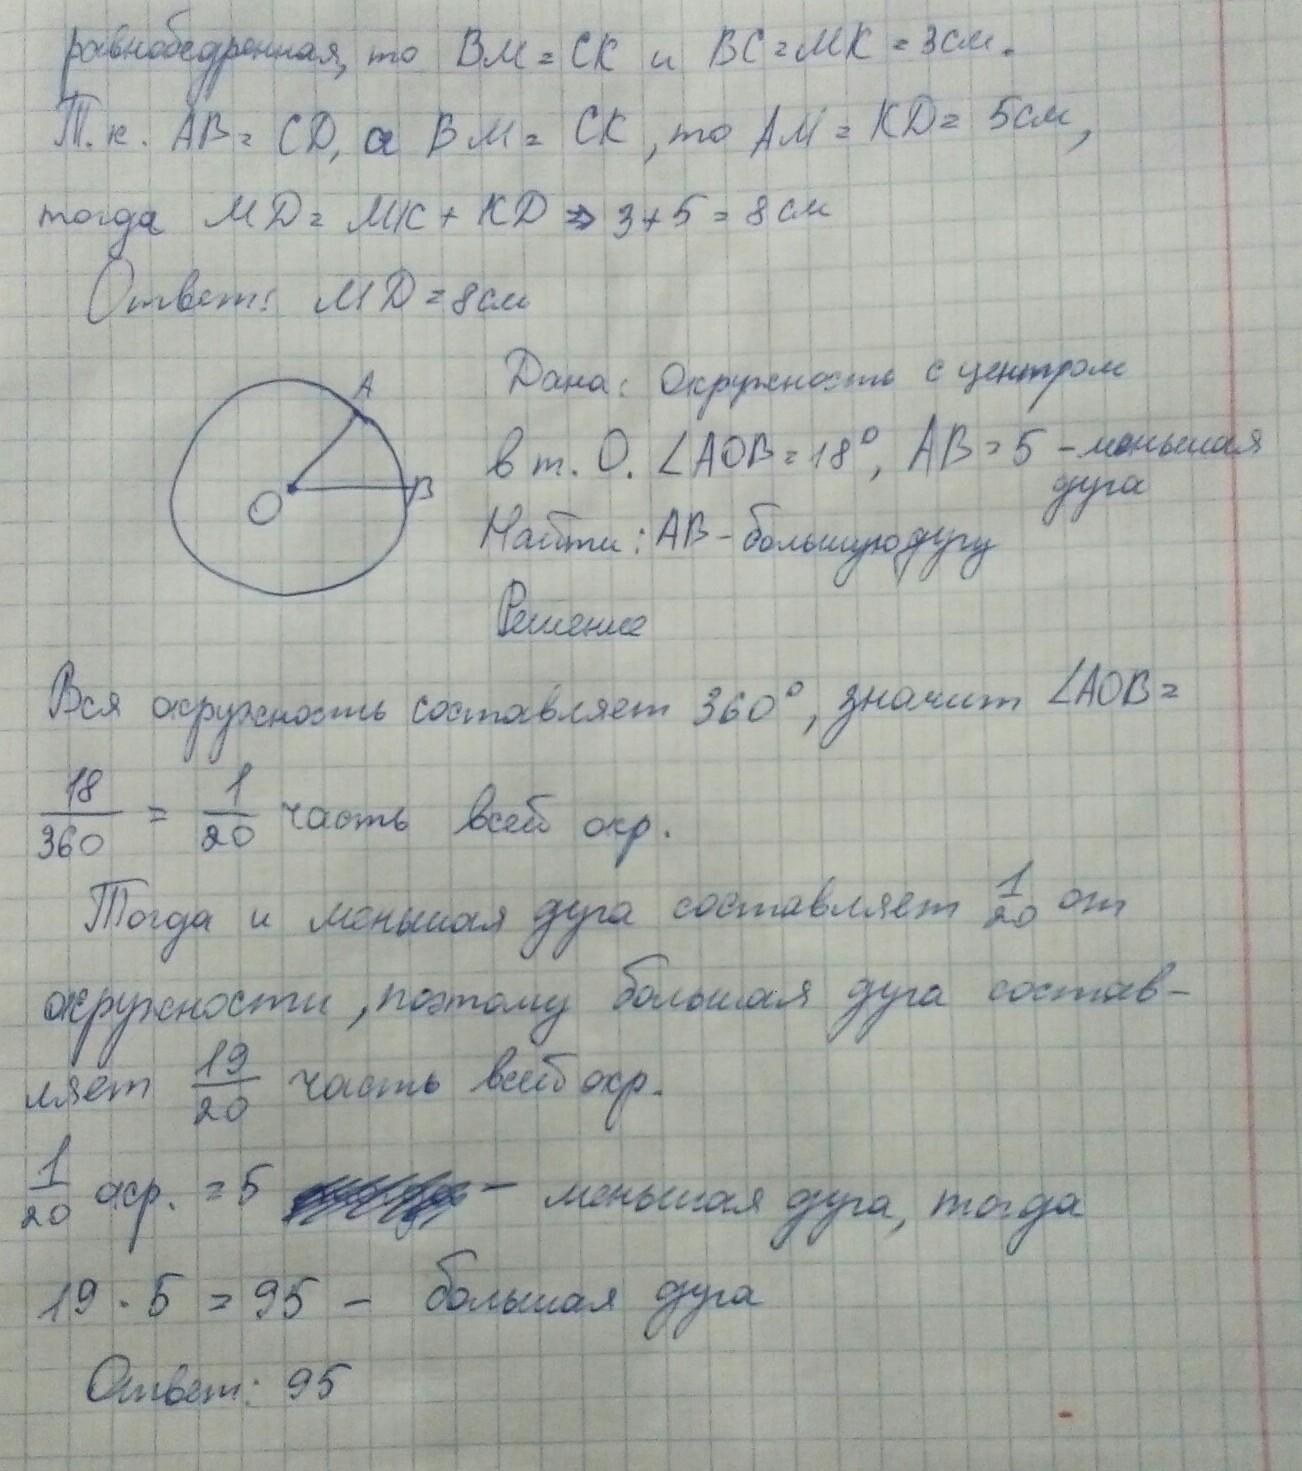 равнобедренная, то BM = CK и BC = MK = 3см.
Т.к. AB = CD, а BM = CK, то AM = KD = 5см,
тогда MD = MK + KD => 3+5 = 8см
Ответ: MD = 8см
A
O
B
Дана: окружность с центром
в т. O. ∠AOB = 18°, AB = 5 - меньшая
дуга
Найти: AB - большую дугу
Решение
Вся окружность составляет 360°, значит ∠AOB =
18/360 = 1/20 часть всей окр.
Тогда и меньшая дуга составляет 1/20 от
окружности, поэтому большая дуга состав-
ляет 19/20 часть всей окр.
1/20 окр. = 5 - меньшая дуга, тогда
19 · 5 = 95 - большая дуга
Ответ: 95